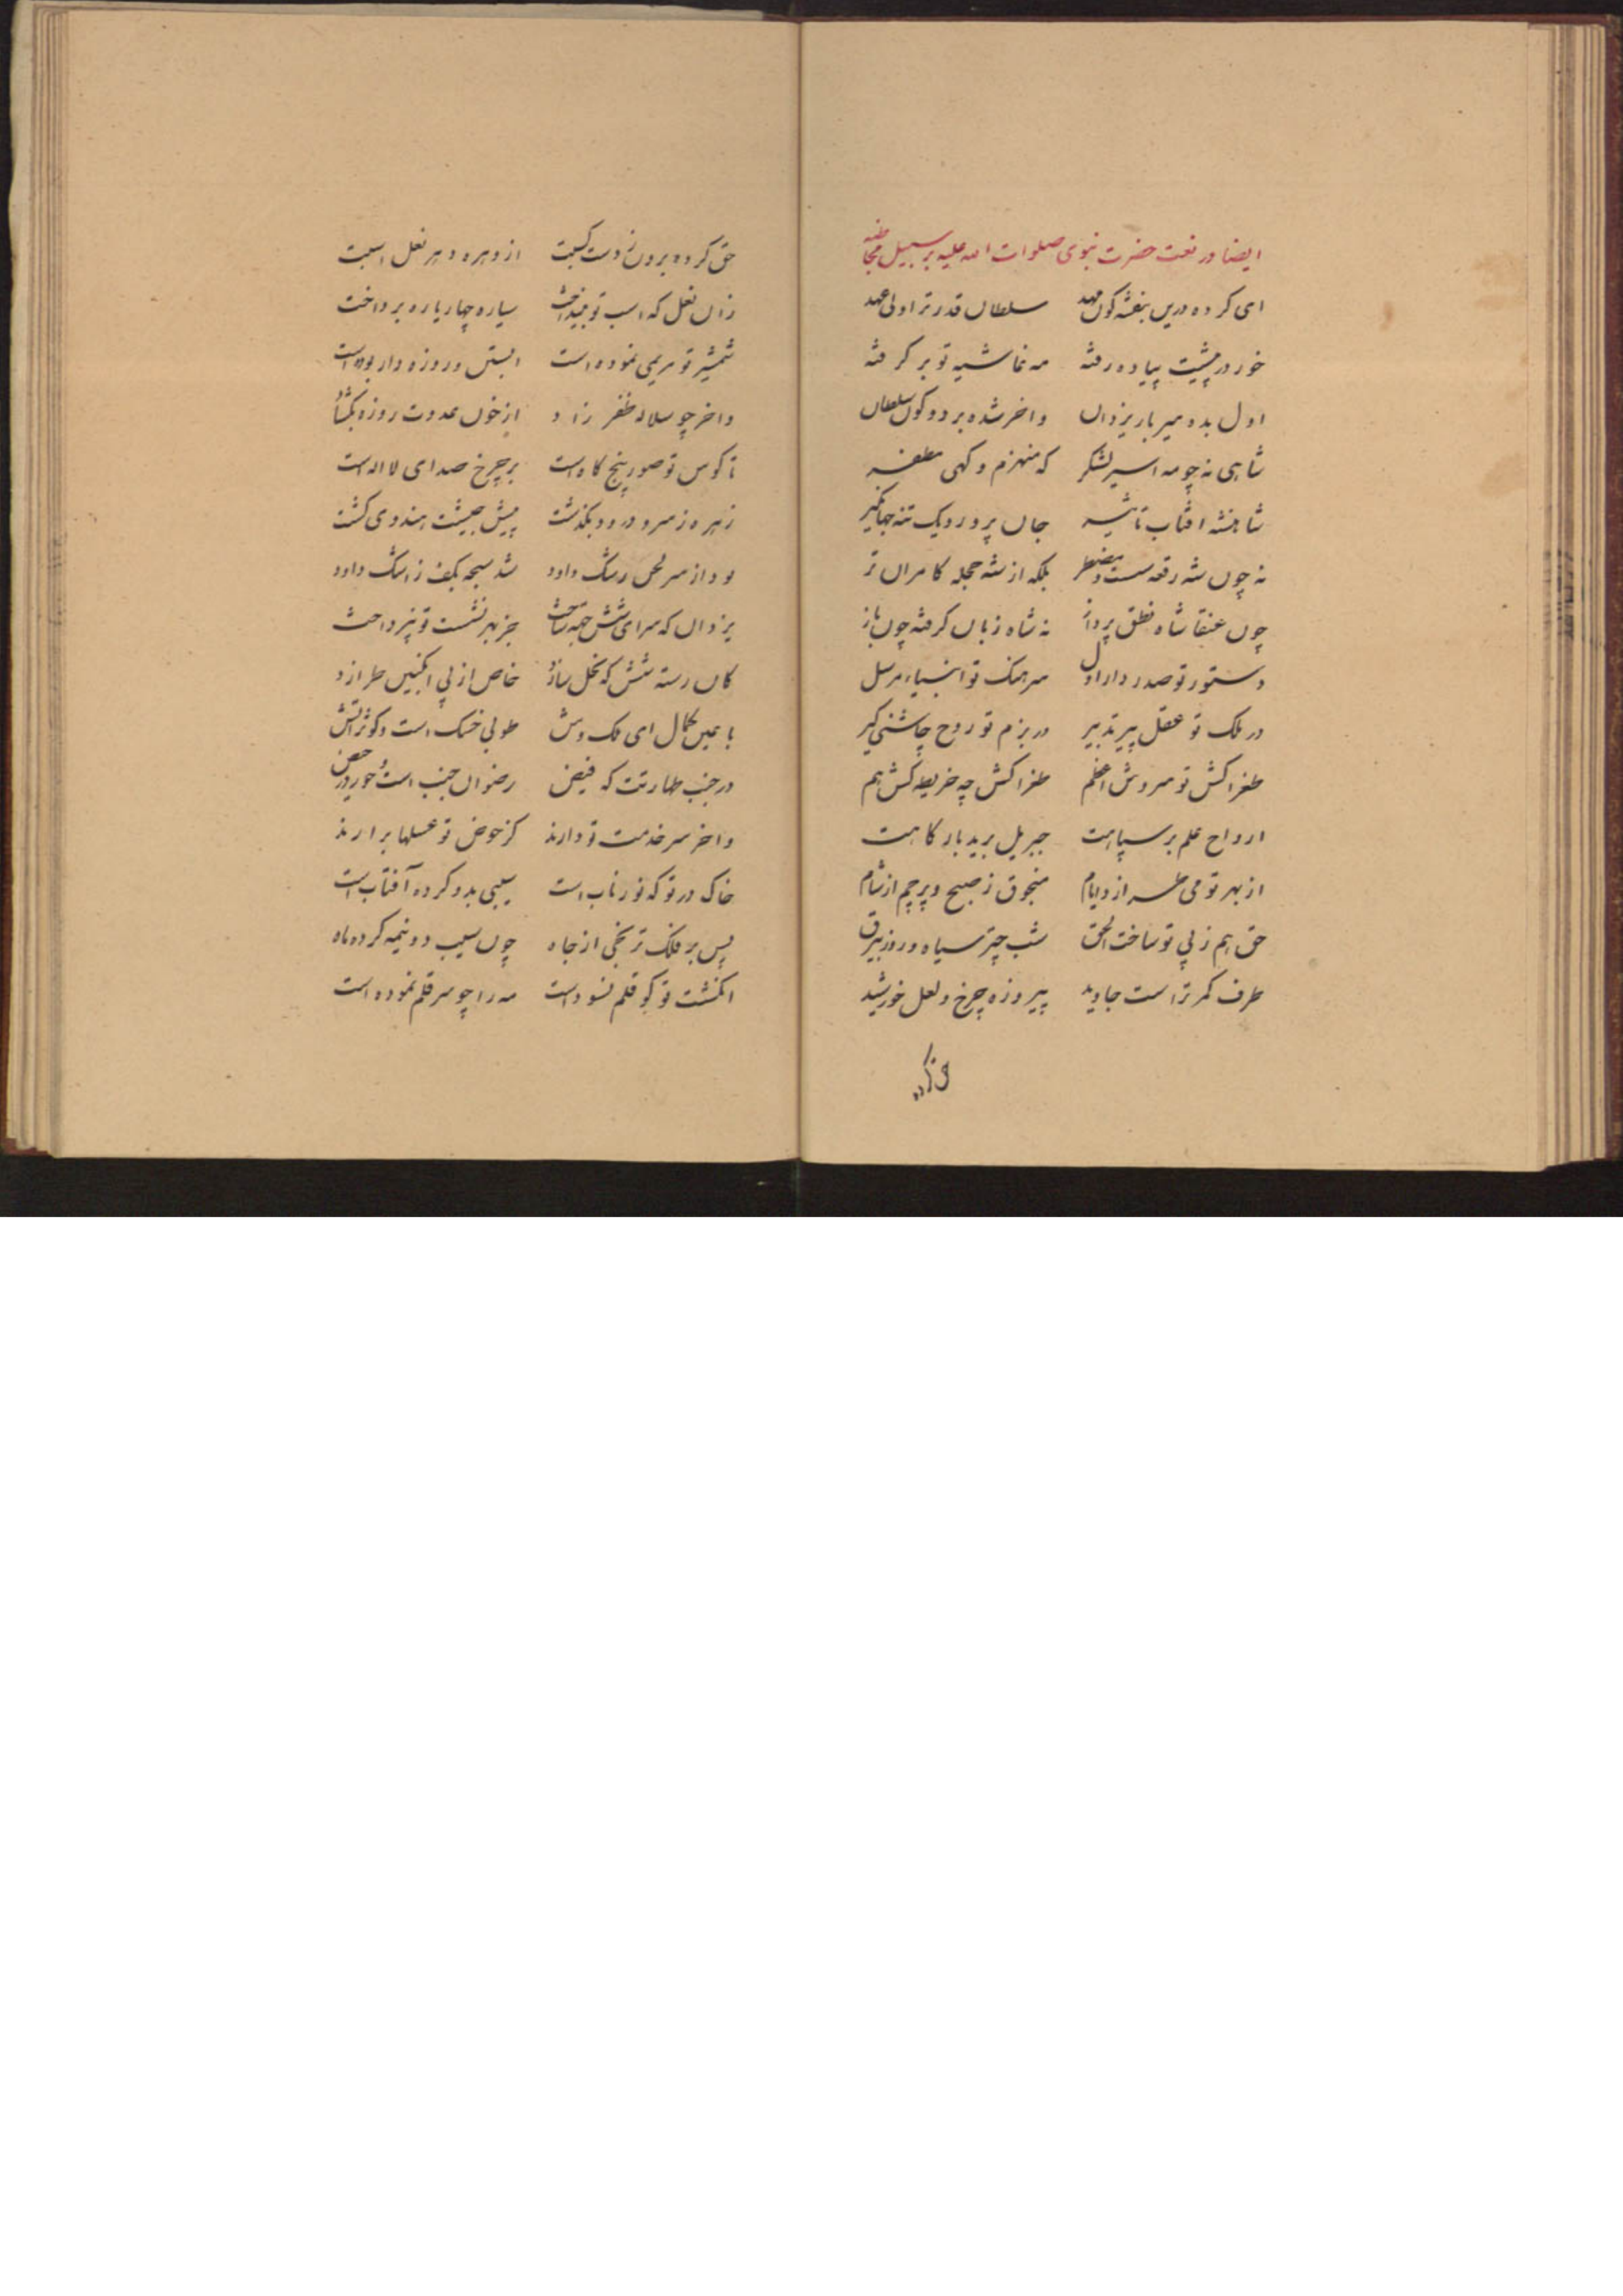 ایضا در نعت حضرت نبوی صلوات الله علیه بر سبیل مخاطبه
ای کرده درین بنفشه گون مهد سلطان قدر ترا ولی عهد
خور در پیشت پیاده رفته مه غاشیه تو بر گرفته
اول بده میر بار یزدان واخر شده بر دو کون سلطان
شاهی نه چو مه اسیر لشکر که منهزم و گهی مظفر
شاهنشه افتاب تاثیر جان پرور و یک تنه جهانگیر
نه چون شه رقعه سست و مضطر بلکه از شه حجله کامران تر
چون عنقا شاه نطق پرداز نه شاه زبان گرفته چون باز
دستور تو صدر دار اول سرهنگ تو انبیاء مرسل
در ملک تو عقل پیر تدبیر در بزم تو روح چاشنی گیر
طغرا کش تو سروش اعظم طغرا کش چه خریطه کش هم
ارواح علم بر سپاهت جبریل برید بارگاهت
از بهر تو می طرازد ایام منجوق ز صبح و پرچم از شام
حق هم ز پی تو ساخت الحق شب چتر سیاه و روز بیرق
طرف کمر تراست جاوید پیروزه چرخ و لعل خورشید
حق کرده برون ز دست گیتت از دهره دهر نعل اسبت
زان نعل که اسب تو بینداخت سیاره چهار یاره پرداخت
شمشیر تو مریمی نموده است ابستن و روزه دار بوده است
واخر چو سلاله ظفر زاد از خون عدوت روزه بگشاد
تا کوس تو صور پنج گاه است بر چرخ صدای لا اله است
زهره ز سرود و رود بگذشت پیش حبیشت هندوی گشت
بود از سر لحن رشک داود شد سبحه بکف ز اشک داود
یزدان که سرای شش جهه ساخت جز بهر نشست تو نپرداخت
کان رسته شش که نحل سازد خاص از پی انگبین طرازد
با عین کمال ای فلک وش طوبی خسک است و کوثر اتش
در جنب طهارتت که فیض رضوان جنب است و حور در حیض
واخر سر خدمت تو دارند کز حوض تو غسلها برارند
خاک در تو که نور ناب است سیبی بدو کرده آفتاب است
پس بر فلک ترنجی از جاه چون سیب دو نیمه کرده ماه
انگشت تو گو قلم نسوده است مه را چو سر قلم نموده است